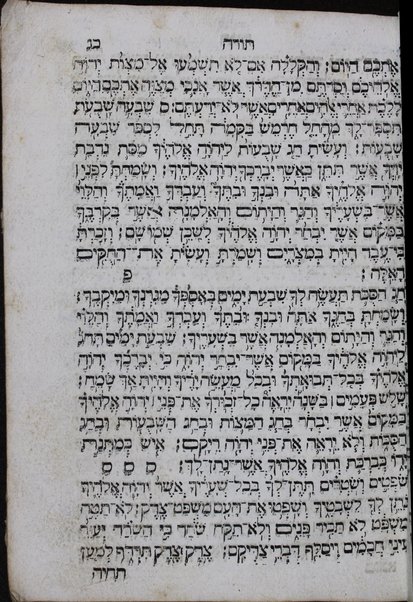 תורה כג
אֶתְכֶם הַיּוֹם׃ וְהַקְּלָלָה אִם־לֹא תִשְׁמְעוּ אֶל־מִצְוֹת יְהוָה
אֱלֹהֵיכֶם וְסַרְתֶּם מִן־הַדֶּרֶךְ אֲשֶׁר אָנֹכִי מְצַוֶּה אֶתְכֶם הַיּוֹם
לָלֶכֶת אַחֲרֵי אֱלֹהִים אֲחֵרִים אֲשֶׁר לֹא־יְדַעְתֶּם׃ ס שִׁבְעָה שָׁבֻעֹת
תִּסְפָּר־לָךְ מֵהָחֵל חֶרְמֵשׁ בַּקָּמָה תָּחֵל לִסְפֹּר שִׁבְעָה
שָׁבֻעוֹת׃ וְעָשִׂיתָ חַג שָׁבֻעוֹת לַיהוָה אֱלֹהֶיךָ מִסַּת נִדְבַת
יָדְךָ אֲשֶׁר תִּתֵּן כַּאֲשֶׁר יְבָרֶכְךָ יְהוָה אֱלֹהֶיךָ׃ וְשָׂמַחְתָּ לִפְנֵי
יְהוָה אֱלֹהֶיךָ אַתָּה וּבִנְךָ וּבִתֶּךָ וְעַבְדְּךָ וַאֲמָתֶךָ וְהַלֵּוִי
אֲשֶׁר בִּשְׁעָרֶיךָ וְהַגֵּר וְהַיָּתוֹם וְהָאַלְמָנָה אֲשֶׁר בְּקִרְבֶּךָ
בַּמָּקוֹם אֲשֶׁר יִבְחַר יְהוָה אֱלֹהֶיךָ לְשַׁכֵּן שְׁמוֹ שָׁם׃ וְזָכַרְתָּ
כִּי עֶבֶד הָיִיתָ בְּמִצְרָיִם וְשָׁמַרְתָּ וְעָשִׂיתָ אֶת־הַחֻקִּים
הָאֵלֶּה׃ פ
חַג הַסֻּכֹּת תַּעֲשֶׂה לְךָ שִׁבְעַת יָמִים בְּאָסְפְּךָ מִגָּרְנְךָ וּמִיִּקְבֶךָ׃
וְשָׂמַחְתָּ בְּחַגֶּךָ אַתָּה וּבִנְךָ וּבִתֶּךָ וְעַבְדְּךָ וַאֲמָתֶךָ וְהַלֵּוִי
וְהַגֵּר וְהַיָּתוֹם וְהָאַלְמָנָה אֲשֶׁר בִּשְׁעָרֶיךָ׃ שִׁבְעַת יָמִים תָּחֹג
לַיהוָה אֱלֹהֶיךָ בַּמָּקוֹם אֲשֶׁר־יִבְחַר יְהוָה כִּי יְבָרֶכְךָ יְהוָה
אֱלֹהֶיךָ בְּכֹל תְּבוּאָתְךָ וּבְכֹל מַעֲשֵׂה יָדֶיךָ וְהָיִיתָ אַךְ שָׂמֵחַ׃
שָׁלֹשׁ פְּעָמִים בַּשָּׁנָה יֵרָאֶה כָל־זְכוּרְךָ אֶת־פְּנֵי יְהוָה אֱלֹהֶיךָ
בַּמָּקוֹם אֲשֶׁר יִבְחָר בְּחַג הַמַּצּוֹת וּבְחַג הַשָּׁבֻעוֹת וּבְחַג
הַסֻּכּוֹת וְלֹא יֵרָאֶה אֶת־פְּנֵי יְהוָה רֵיקָם׃ אִישׁ כְּמַתְּנַת
יָדוֹ כְּבִרְכַּת יְהוָה אֱלֹהֶיךָ אֲשֶׁר נָתַן־לָךְ׃ ס ס ס
שֹׁפְטִים וְשֹׁטְרִים תִּתֶּן־לְךָ בְּכָל־שְׁעָרֶיךָ אֲשֶׁר יְהוָה אֱלֹהֶיךָ
נֹתֵן לְךָ לִשְׁבָטֶיךָ וְשָׁפְטוּ אֶת־הָעָם מִשְׁפַּט־צֶדֶק׃ לֹא־תַטֶּה
מִשְׁפָּט לֹא תַכִּיר פָּנִים וְלֹא־תִקַּח שֹׁחַד כִּי הַשֹּׁחַד יְעַוֵּר
עֵינֵי חֲכָמִים וִיסַלֵּף דִּבְרֵי צַדִּיקִם׃ צֶדֶק צֶדֶק תִּרְדֹּף לְמַעַן
תחיה